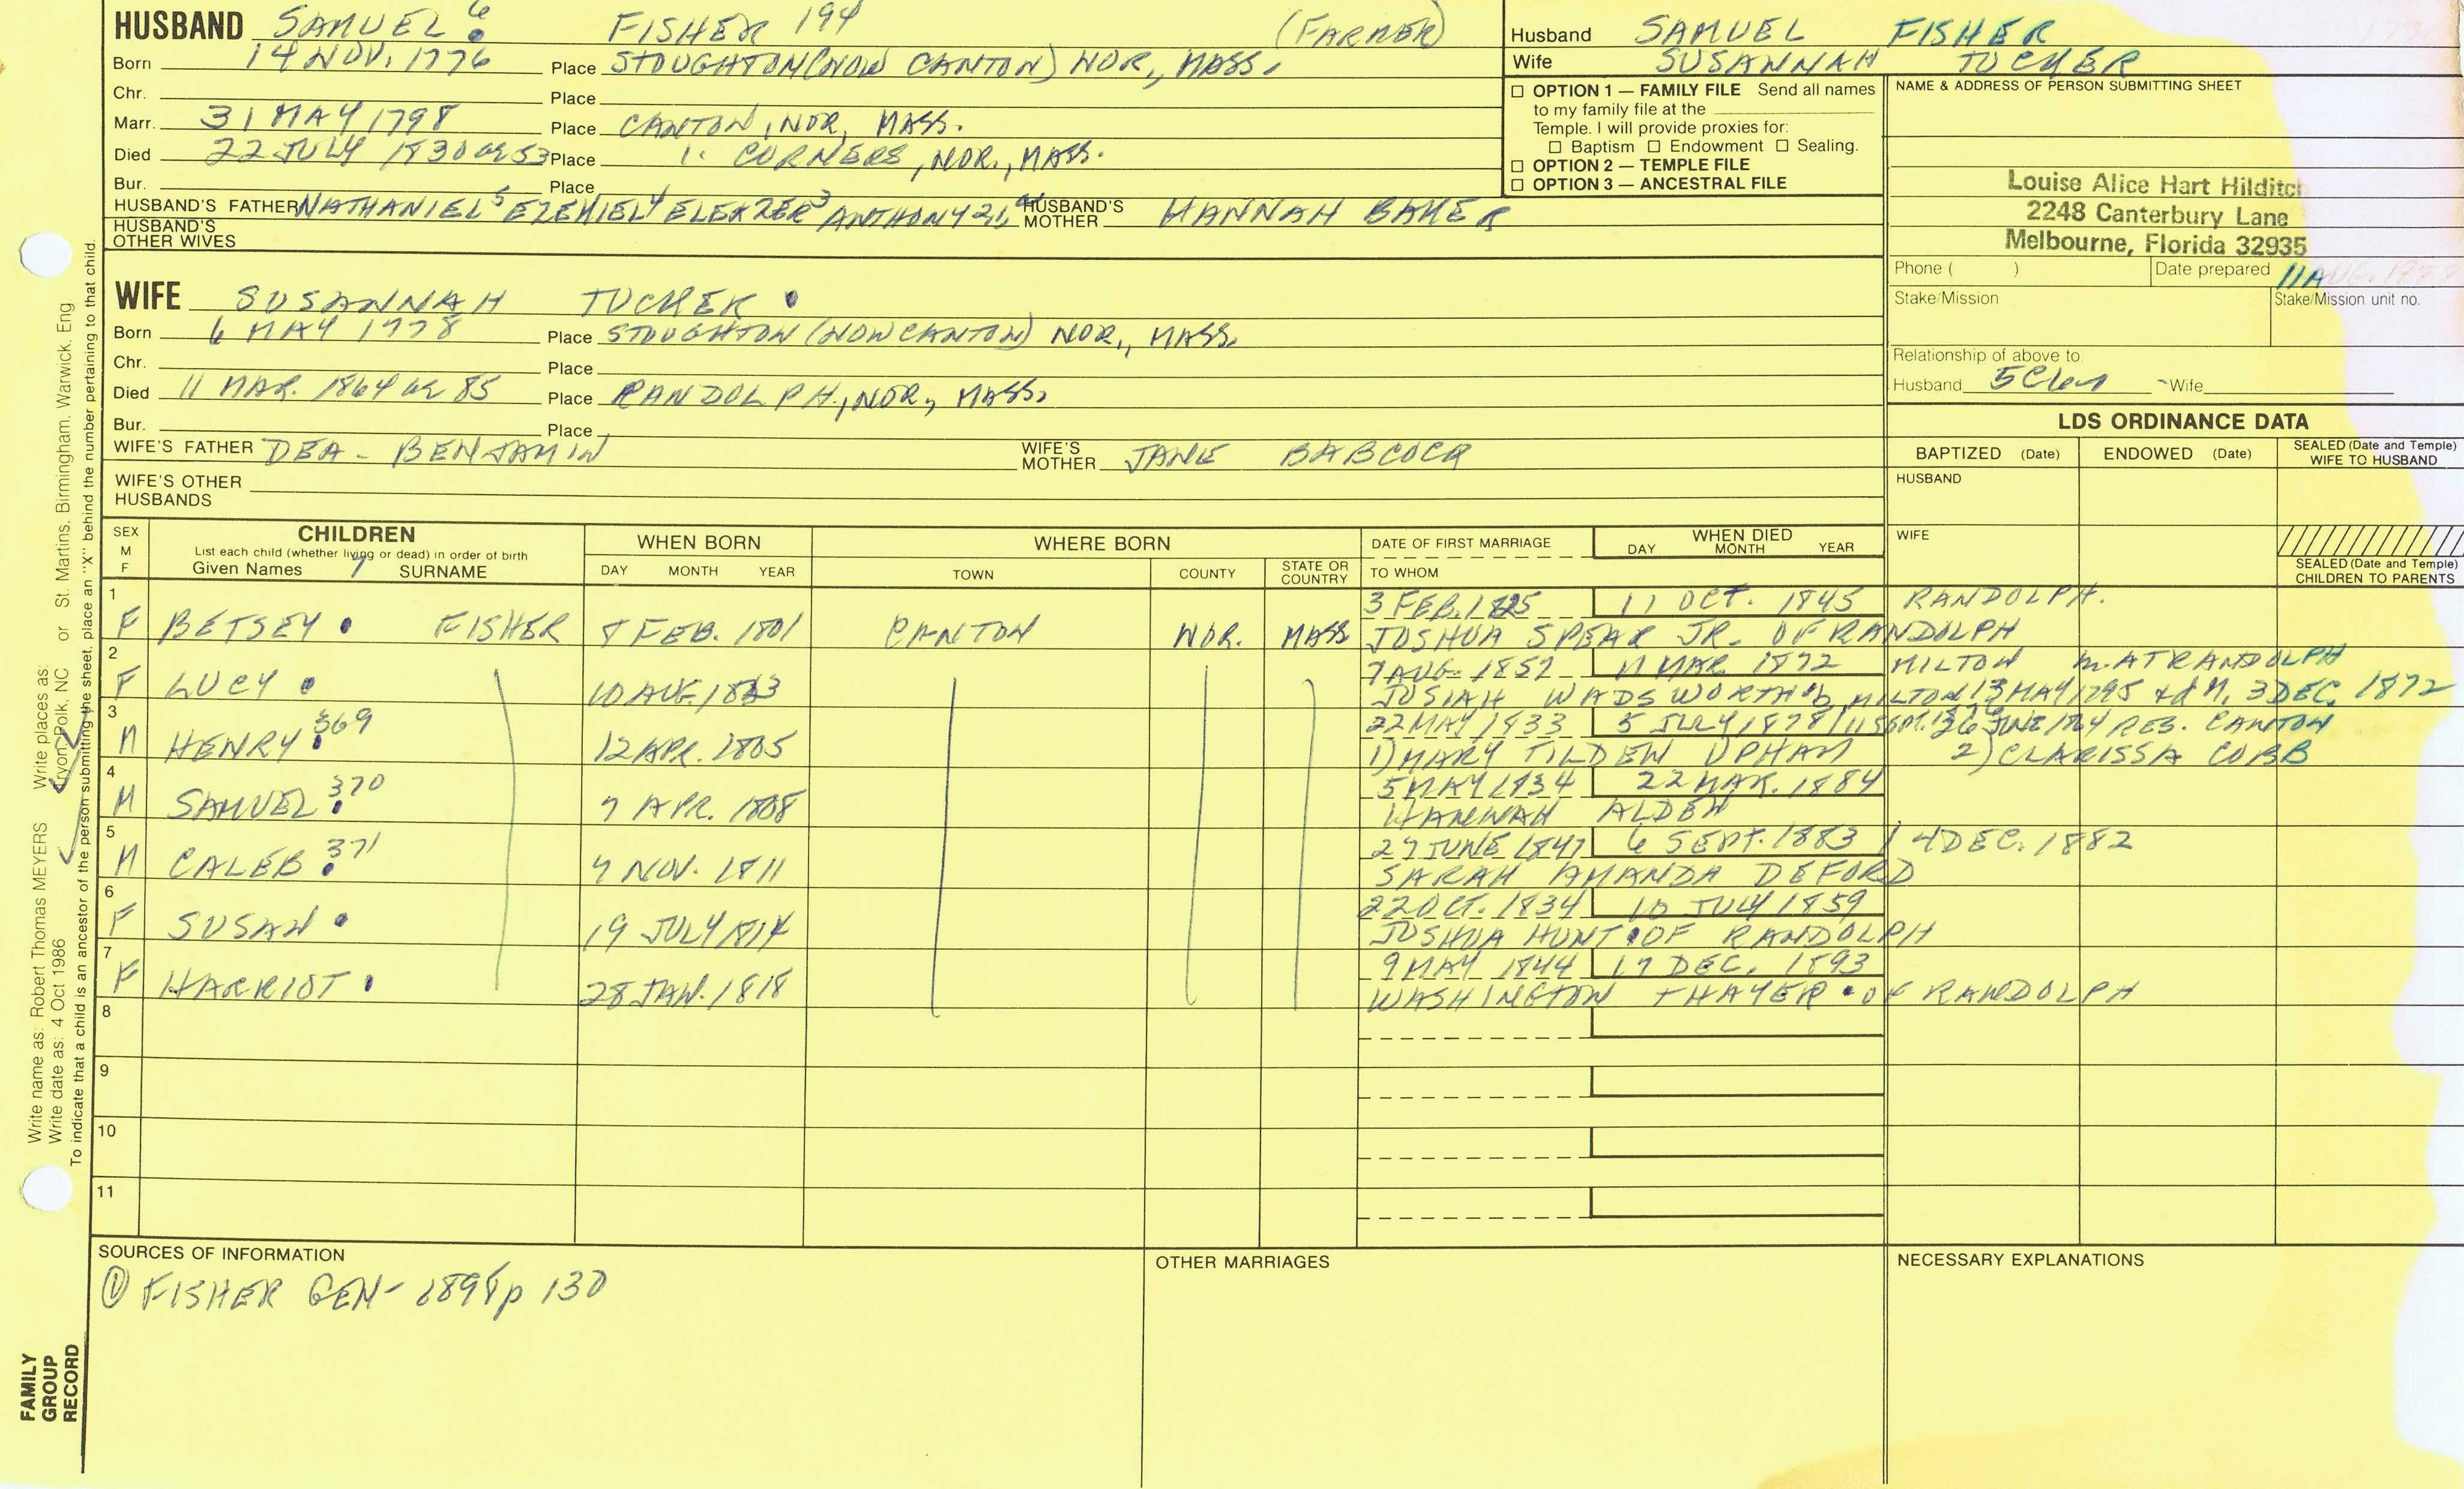 HUSBAND SAMUEL 6 FISHER 194 (FARMER)
Born 14 NOV. 1776 Place STOUGHTON (NOW CANTON) NOR., MASS.
Chr. Place
Marr. 31 MAY 1798 Place CANTON, NOR, MASS.
Died 22 JULY 1830 ae 53 Place CORNERS, NOR., MASS.
Bur. Place
HUSBAND'S FATHER NATHANIEL 5 EZEKIEL 4 ELEAZER 3 ANTHONY 2 1 HUSBAND'S MOTHER HANNAH BAKER
HUSBAND'S OTHER WIVES
Husband SAMUEL FISHER
Wife SUSANNAH TUCKER
☐ OPTION 1 — FAMILY FILE Send all names
to my family file at the
Temple. I will provide proxies for:
☐ Baptism ☐ Endowment ☐ Sealing.
☐ OPTION 2 — TEMPLE FILE
☐ OPTION 3 — ANCESTRAL FILE
NAME & ADDRESS OF PERSON SUBMITTING SHEET
Louise Alice Hart Hilditch
2248 Canterbury Lane
Melbourne, Florida 32935
Phone ( ) Date prepared 11 AUG.
Stake/Mission Stake/Mission unit no.
Relationship of above to
Husband Wife
WIFE SUSANNAH TUCKER
Born 6 MAY 1778 Place STOUGHTON (NOW CANTON) NOR., MASS.
Chr. Place
Died 11 MAR. 1864 ae 85 Place RANDOLPH, NOR., MASS.
Bur. Place
WIFE'S FATHER DEA - BENJAMIN WIFE'S MOTHER JANE BABCOCK
WIFE'S OTHER HUSBANDS
LDS ORDINANCE DATA
BAPTIZED (Date) ENDOWED (Date) SEALED (Date and Temple) WIFE TO HUSBAND
HUSBAND
WIFE
SEALED (Date and Temple) CHILDREN TO PARENTS
SEX M F
CHILDREN
List each child (whether living or dead) in order of birth
Given Names 7 SURNAME
WHEN BORN
DAY MONTH YEAR
WHERE BORN
TOWN COUNTY STATE OR COUNTRY
DATE OF FIRST MARRIAGE
TO WHOM
WHEN DIED
DAY MONTH YEAR
1 F BETSEY FISHER 8 FEB. 1801 CANTON NOR. MASS 3 FEB. 1825 11 OCT. 1845 RANDOLPH.
JOSHUA SPEAR JR. OF RANDOLPH
2 F LUCY 10 AUG. 1803 7 AUG. 1852 11 MAR 1872 MILTON m. AT RANDOLPH
JOSIAH WADSWORTH b MILTON 13 MAY 1795 + d M. 3 DEC. 1872
3 M HENRY 369 12 APR. 1805 22 MAY 1833 5 JULY 1878 RES. CANTON
1) MARY TILDEN UPHAM 2) CLARISSA COBB
4 M SAMUEL 370 7 APR. 1808 5 MAY 1834 22 MAR. 1884
HANNAH ALDEN
5 M CALEB 371 7 NOV. 1811 27 JUNE 1847 6 SEPT. 1883 / 4 DEC. 1882
SARAH AMANDA DEFORD
6 F SUSAN 19 JULY 1814 22 OCT. 1834 10 JULY 1859
JOSHUA HUNT OF RANDOLPH
7 F HARRIOT 28 JAN. 1818 9 MAY 1844 17 DEC. 1893
WASHINGTON THAYER OF RANDOLPH
8
9
10
11
SOURCES OF INFORMATION
① FISHER GEN- 1898 p 130
OTHER MARRIAGES
NECESSARY EXPLANATIONS
Write name as: Robert Thomas MEYERS Write places as: Tryon, Polk, NC or St. Martins, Birmingham, Warwick, Eng
Write date as: 4 Oct 1986
To indicate that a child is an ancestor of the person submitting the sheet, place an "X" behind the number pertaining to that child.
FAMILY GROUP RECORD